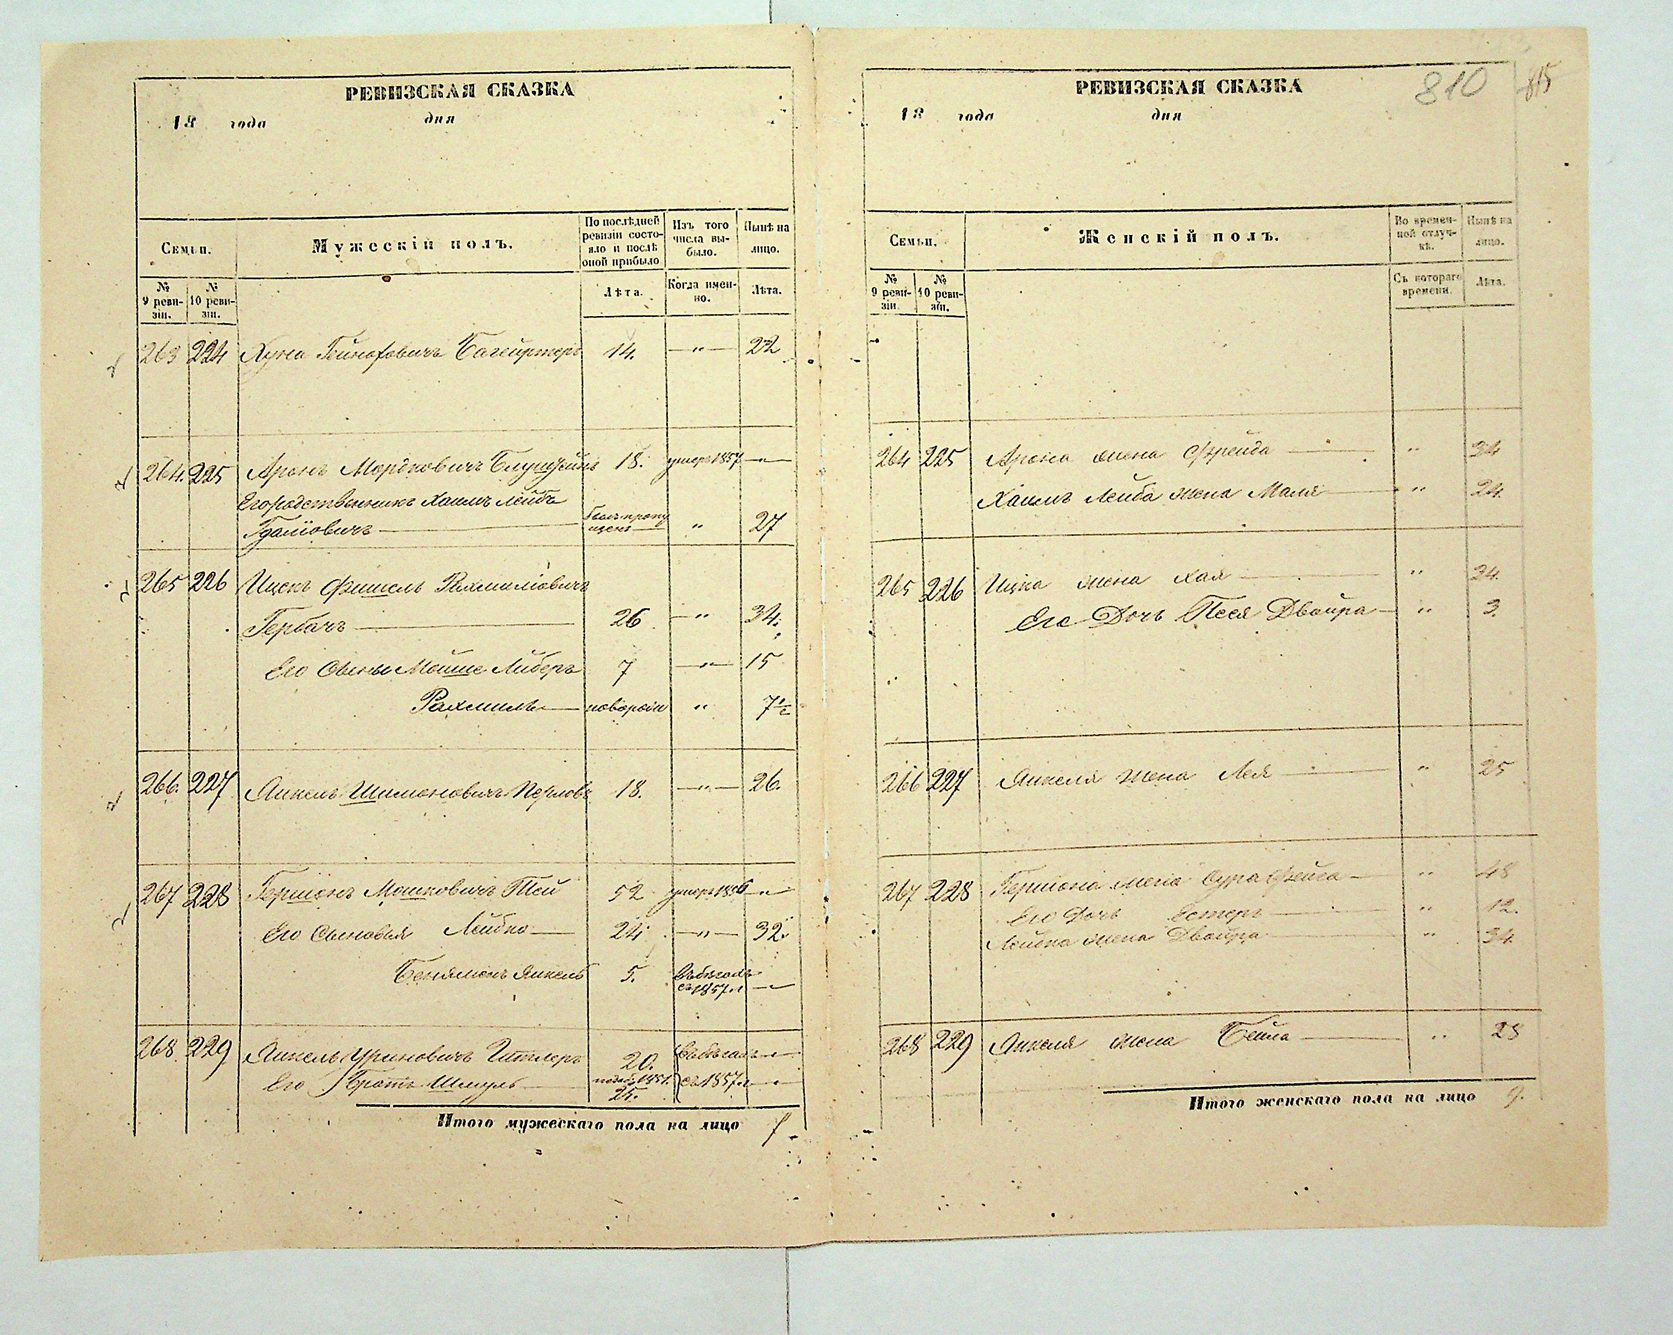 РЕВИЗСКАЯ СКАЗКА
18 года дня
Семьи.
Мужескій полъ.
По послѣдней ревизіи состояло и послѣ оной прибыло
Изъ того числа выбыло.
Нынѣ на лицо.
№ 9 ревизіи.
№ 10 ревизіи.
Лѣта.
Когда именно.
Лѣта.
263 224 14. —"— 22
264. 225 Аронъ Мордковичъ 18. умеръ 1857 —"—
Его родственникъ Хаимъ Лейба
— Былъ пропущенъ " 27
265 226 Ицекъ Фишель Рахмиліовичъ
— 26 —"— 34.
Его Сыны Мойше Либеръ 7 —"— 15
Рахмиль — новорож " 7½
266. 227 Янкель Шимоновичъ Перловъ 18. —"— 26.
267 228 Гершонъ Мошковичъ 52 умеръ 1856 —"—
Его Сыновья Лейбко — 24 —"— 32.
Беняминъ Янкель 5. въ бѣгахъ съ 1857 г —"—
268. 229 Янкель 20. въ бѣгахъ —"—
Его Братъ Шмуль — 1851. 25. съ 1857 г —"—
Итого мужескаго пола на лицо 7
810
815
РЕВИЗСКАЯ СКАЗКА
18 года дня
Семьи.
Женскій полъ.
Во временной отлучкѣ.
Нынѣ на лицо.
№ 9 ревизіи.
№ 10 ревизіи.
Съ котораго времени.
Лѣта.
264 225 Арона жена Фрейда — " 34
Хаимъ Лейба жена Маля — " 24.
265 226 Ицка жена Хая — " 34.
Его Дочь Песя Двойра — " 3.
266 227 Янкеля жена Лея — " 25
267 228 Гершона жена Сура Фейга — " 48
Его Дочь Естеръ — " 12.
Лейбки жена Двойра — " 34.
268 229 Янкеля жена Бейла — " 28
Итого женскаго пола на лицо 9.